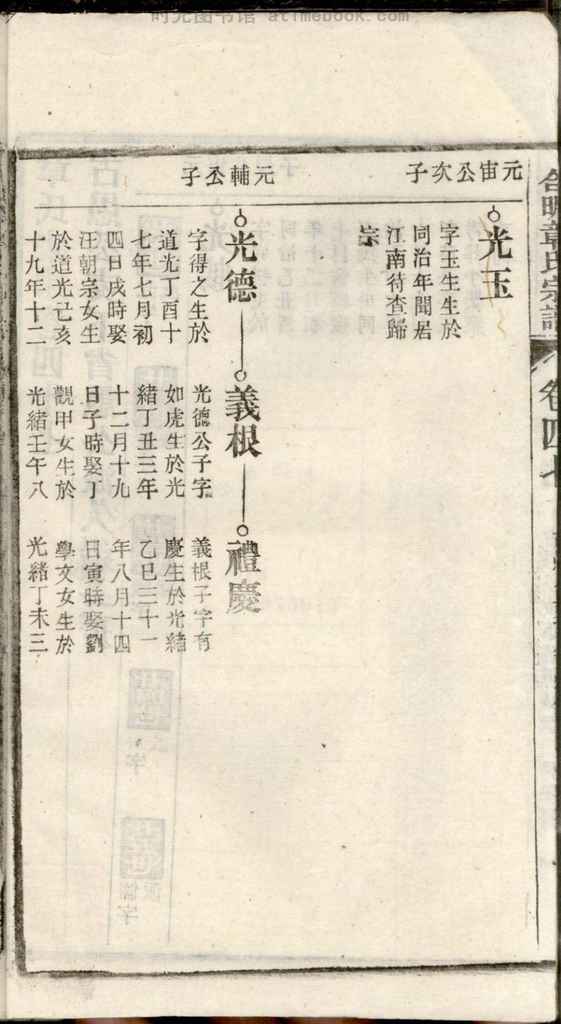 时光图书馆 atimebook.com
章氏宗譜
卷四七
元宙公次子
光玉
字玉生生於
同治年間居
江南待查歸
宗
元輔公子
光德
字得之生於
道光丁酉十
七年七月初
四日戌時娶
汪朝宗女生
於道光亡亥
十九年十二
義根
光德公子字
如虎生於光
緒丁丑三年
十二月十九
日子時娶丁
觀甲女生於
光緒壬午八
禮慶
義根子字有
慶生於光緒
乙巳三十一
年八月十四
日寅時娶劉
學文女生於
光緒丁未三